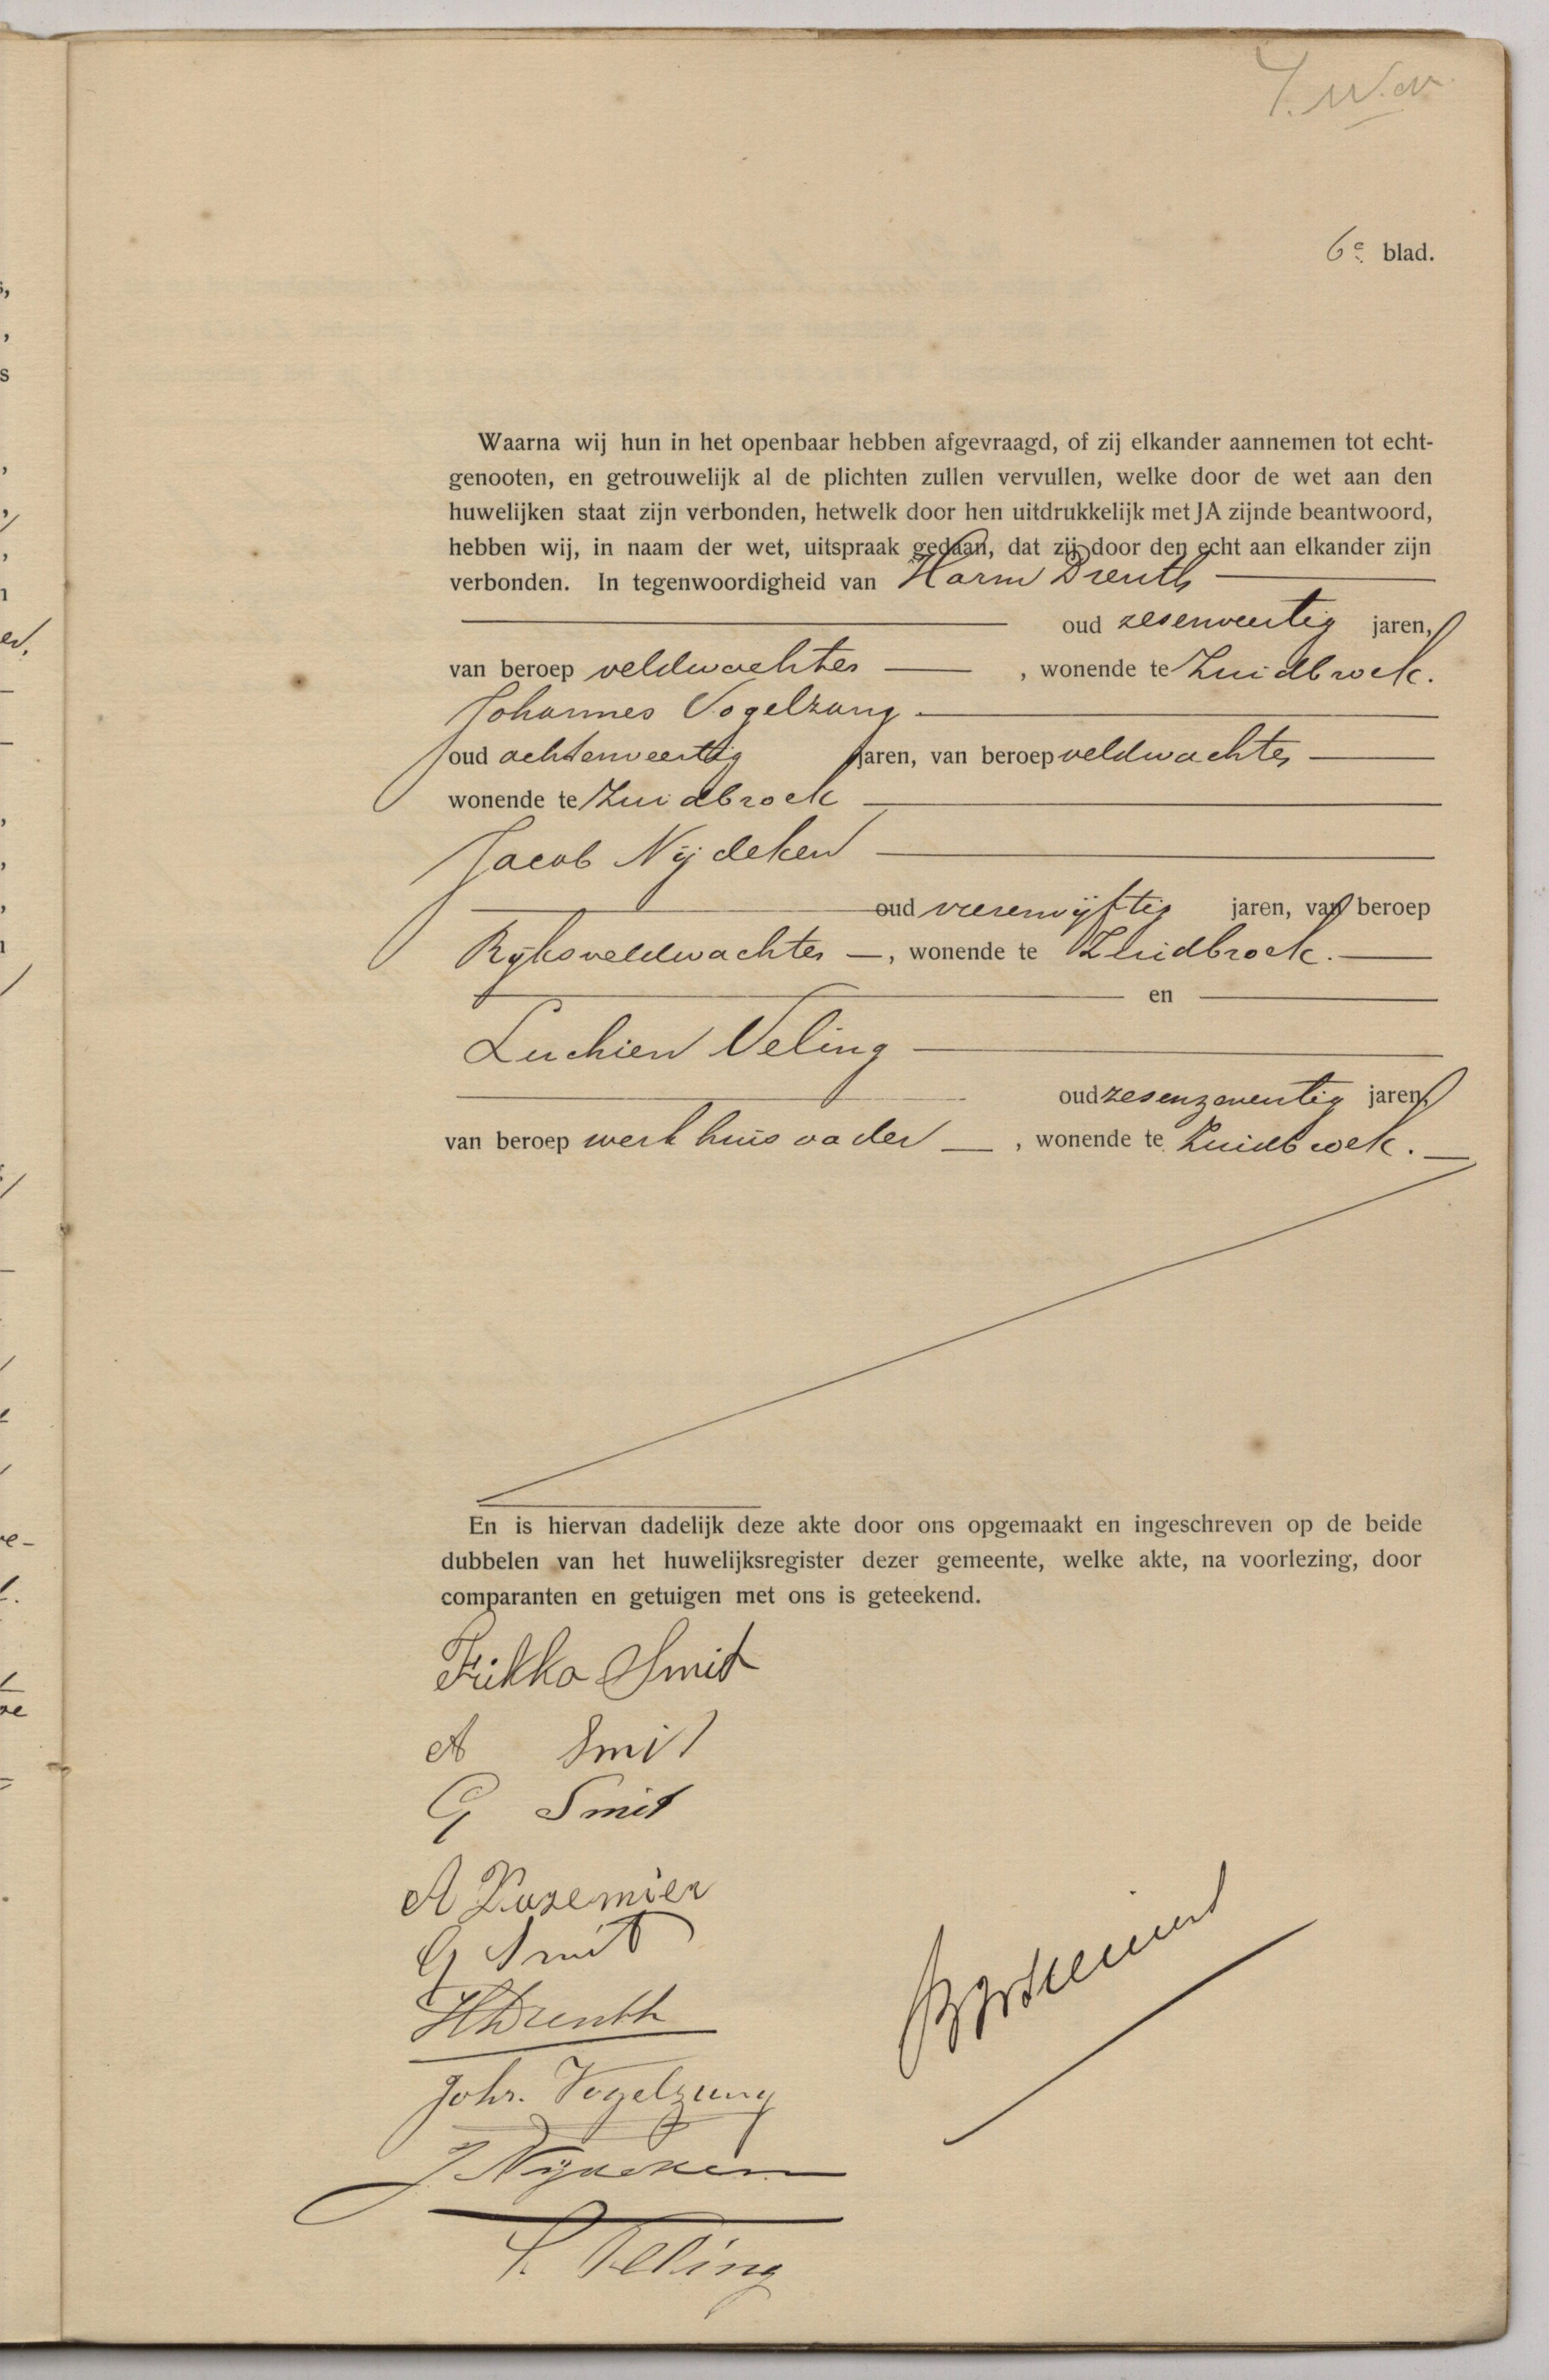 6e blad.
Waarna wij hun in het openbaar hebben afgevraagd, of zij elkander aannemen tot echt-
genooten, en getrouwelijk al de plichten zullen vervullen, welke door de wet aan den
huwelijken staat zijn verbonden, hetwelk door hen uitdrukkelijk met JA zijnde beantwoord,
hebben wij, in naam der wet, uitspraak gedaan, dat zij door den echt aan elkander zijn
verbonden. In tegenwoordigheid van Harm Drenth
oud zesenveertig jaren,
van beroep veldwachter, wonende te Zuidbroek.
Johannes Vogelzang
oud achtenveertig jaren, van beroep veldwachter
wonende te Zuidbroek
Jacob Nijdeken
oud vierenvijftig jaren, van beroep
Rijksveldwachter, wonende te Zuidbroek.
en
Luchien Veling
oud zesenzeventig jaren
van beroep werkhuisvader, wonende te Zuidbroek.
En is hiervan dadelijk deze akte door ons opgemaakt en ingeschreven op de beide
dubbelen van het huwelijksregister dezer gemeente, welke akte, na voorlezing, door
comparanten en getuigen met ons is geteekend.
Fikko Smit
A Smit
G Smit
A Dusemier
G Smit
H Drenth
Johs. Vogelzang
J Nijdeken
L. Veling